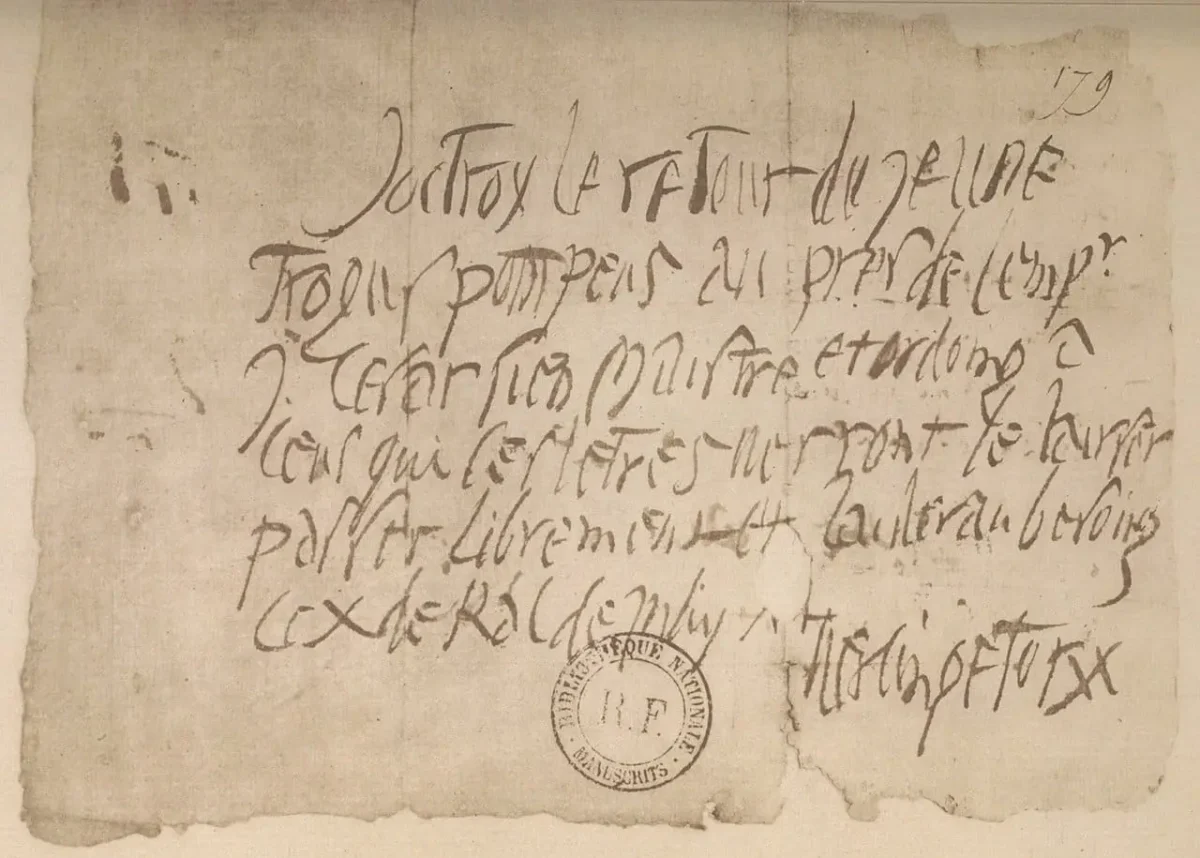 179
J'octroy le retour du jeune
Trogus pompeus au pres de lempr
J. Cesar sien Maistre et ordong a
ceus qui ces letres verront le laisser
passer librement et laider au besoing
ce x de Ral de May
BIBLIOTHEQUE NATIONALE
R.F.
MANUSCRITS